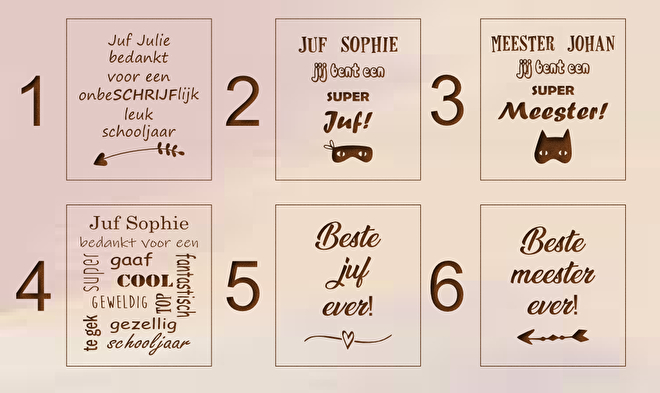 1
Juf Julie
bedankt
voor een
onbeSCHRIJFlijk
leuk
schooljaar
2
JUF SOPHIE
jij bent een
SUPER
Juf!
3
MEESTER JOHAN
jij bent een
SUPER
Meester!
4
Juf Sophie
bedankt voor een
super
gaaf
fantastisch
COOL
GEWELDIG
TOP
te gek
gezellig
schooljaar
5
Beste
juf
ever!
6
Beste
meester
ever!